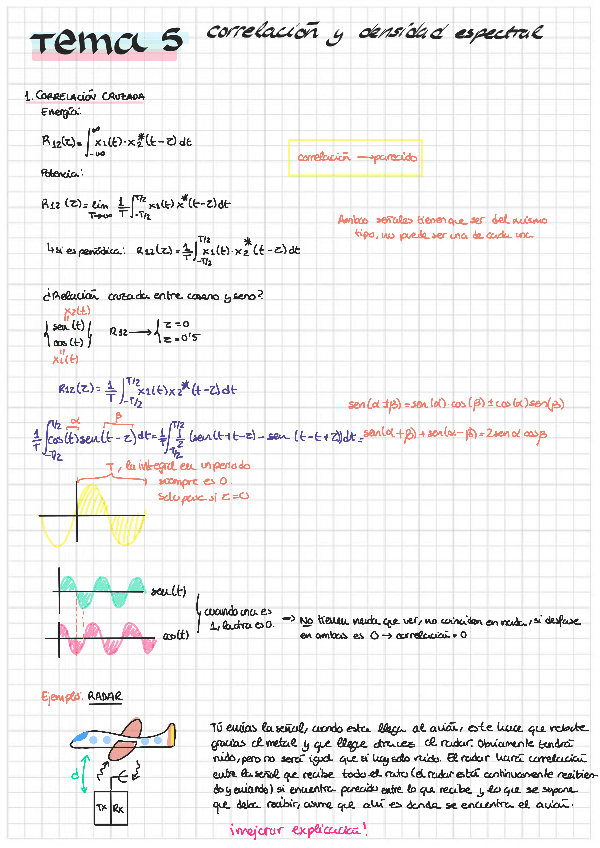 Tema 5 correlación y densidad espectral
1. CORRELACIÓN CRUZADA
Energía:
R12(τ)= ∫_{-∞}^{∞} x1(t)·x2*(t-τ)dt
correlación ⟶ parecido
Potencia:
R12(τ)= lim_{T→∞} 1/T ∫_{-T/2}^{T/2} x1(t) x*(t-τ)dt
Ambas señales tienen que ser del mismo
tipo, no puede ser una de cada una.
↳ si es periódica: R12(τ)= 1/T ∫_{-T/2}^{T/2} x1(t)·x2*(t-τ)dt
¿Relación cruzada entre coseno y seno?
x2(t)
sen(t)
cos(t)
x1(t)
R12 ⟶ { τ=0
τ=0'5
R12(τ)= 1/T ∫_{-T/2}^{T/2} x1(t)x2*(t-τ)dt
sen(α±β)=sen(α)·cos(β)±cos(α)sen(β)
α β
1/T ∫_{-T/2}^{T/2} cos(t)sen(t-τ)dt = 1/T ∫_{-T/2}^{T/2} 1/2 (sen(t+t-τ)-sen(t-t+τ))dt =
sen(α+β)+sen(α-β)=2senα cosβ
T, la integral en un periodo
siempre es 0.
Solo pasa si τ=0
sen(t)
cos(t)
cuando una es
1, la otra es 0.
⇒ No tienen nada que ver, no coinciden en nada, si desfase
en ambas es 0 → correlación=0
Ejemplo: RADAR
d
TX RX
Tú envías la señal, cuando esta llega al avión, este hace que rebote
gracias al metal y que llegue otra vez al radar. Obviamente tendrá
ruido, pero no será igual que si hay solo ruido. El radar hará correlación
entre la señal que recibe todo el rato (el radar está continuamente recibien-
do y enviando) si encuentra parecido entre lo que recibe y lo que se supone
que debe recibir, asume que ahí es donde se encuentra el avión.
¡mejorar explicación!